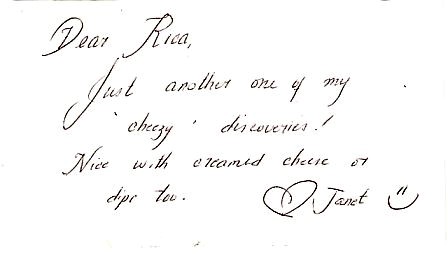 Dear Rica,
Just another one of my
'cheezy' discoveries!
Nice with creamed cheese or
dips too.
♡ Janet